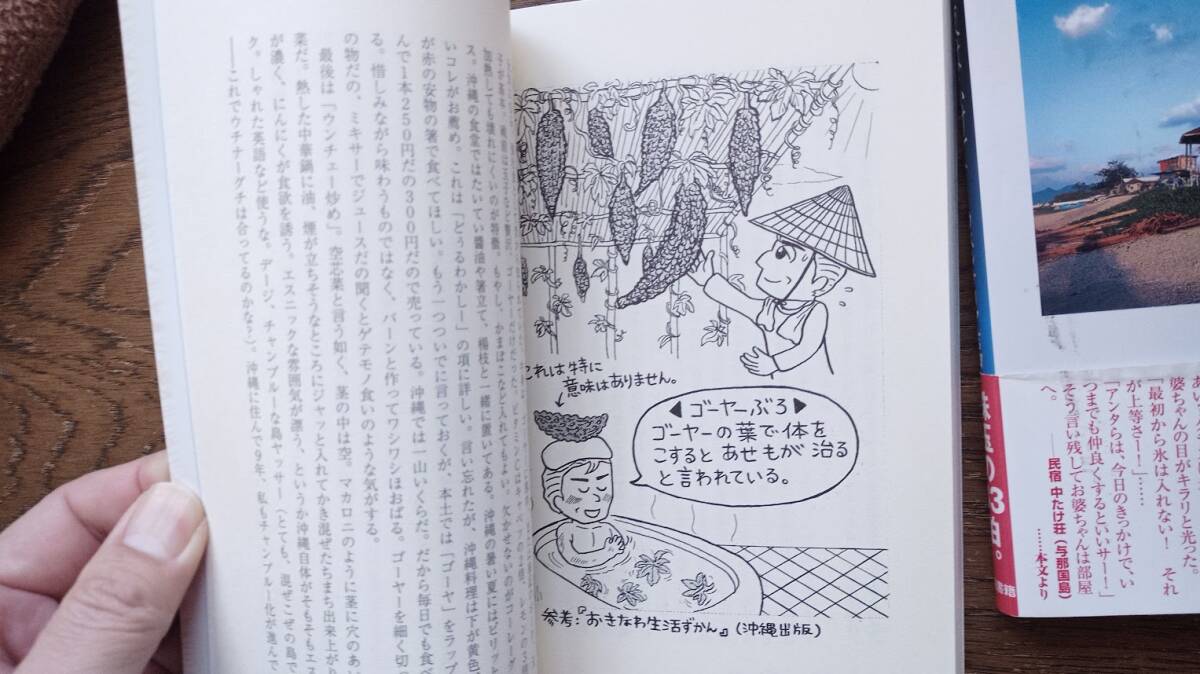 これは特に
意味はありません。
◀ゴーヤーぶろ▶
ゴーヤーの葉で体を
こするとあせもが治る
と言われている。
参考：『おきなわ生活ずかん』（沖縄出版）
加熱しても壊れにくいのが特徴。もやし、かまぼこなど入れてもよい。欠かせないのがコーレーグ
ス。沖縄の食堂ではたいてい醤油や箸立て、楊枝と一緒に置いてある。沖縄の暑い夏にはピリッと
いコレがお薦め。これは「どぅるわかしー」の項に詳しい。言い忘れたが、沖縄料理は下が黄色、
が赤の安物の箸で食べてほしい。もう一つついでに言っておくが、本土では「ゴーヤ」をラップ
んで1本250円だの300円だので売っている。沖縄では一山いくらだ。だから毎日でも食べ
る。惜しみながら味わうものではなく、バーンと作ってワシワシほおばる。ゴーヤーを細く切っ
の物だの、ミキサーでジュースだの聞くとゲテモノ食いのような気がする。
最後は「ウンチェー炒め」。空芯菜と言う如く、茎の中は空。マカロニのように茎に穴のあい
菜だ。熱した中華鍋に油、煙が立ちそうなところにジャッと入れてかき混ぜたちまち出来上がり
が濃く、にんにくが食欲を誘う。エスニックな雰囲気が漂う、というか沖縄自体がそもそもエス
ク。しゃれた英語など使うな。デージ、チャンプルーな島ヤッサー（とても、混ぜこぜの島で
――これでウチナーグチは合ってるのかな？）。沖縄に住んで9年、私もチャンプルー化が進んで
婆ちゃんの目がキラリと光った。
「最初から氷は入れない！　それ
が上等さー！」……
「アンタらは、今日のきっかけで、い
つまでも仲良くするといいサー！」
そう言い残してお婆ちゃんは部屋
へ。
――民宿 中たけ荘（与那国島）
……本文より
珠玉の3泊。